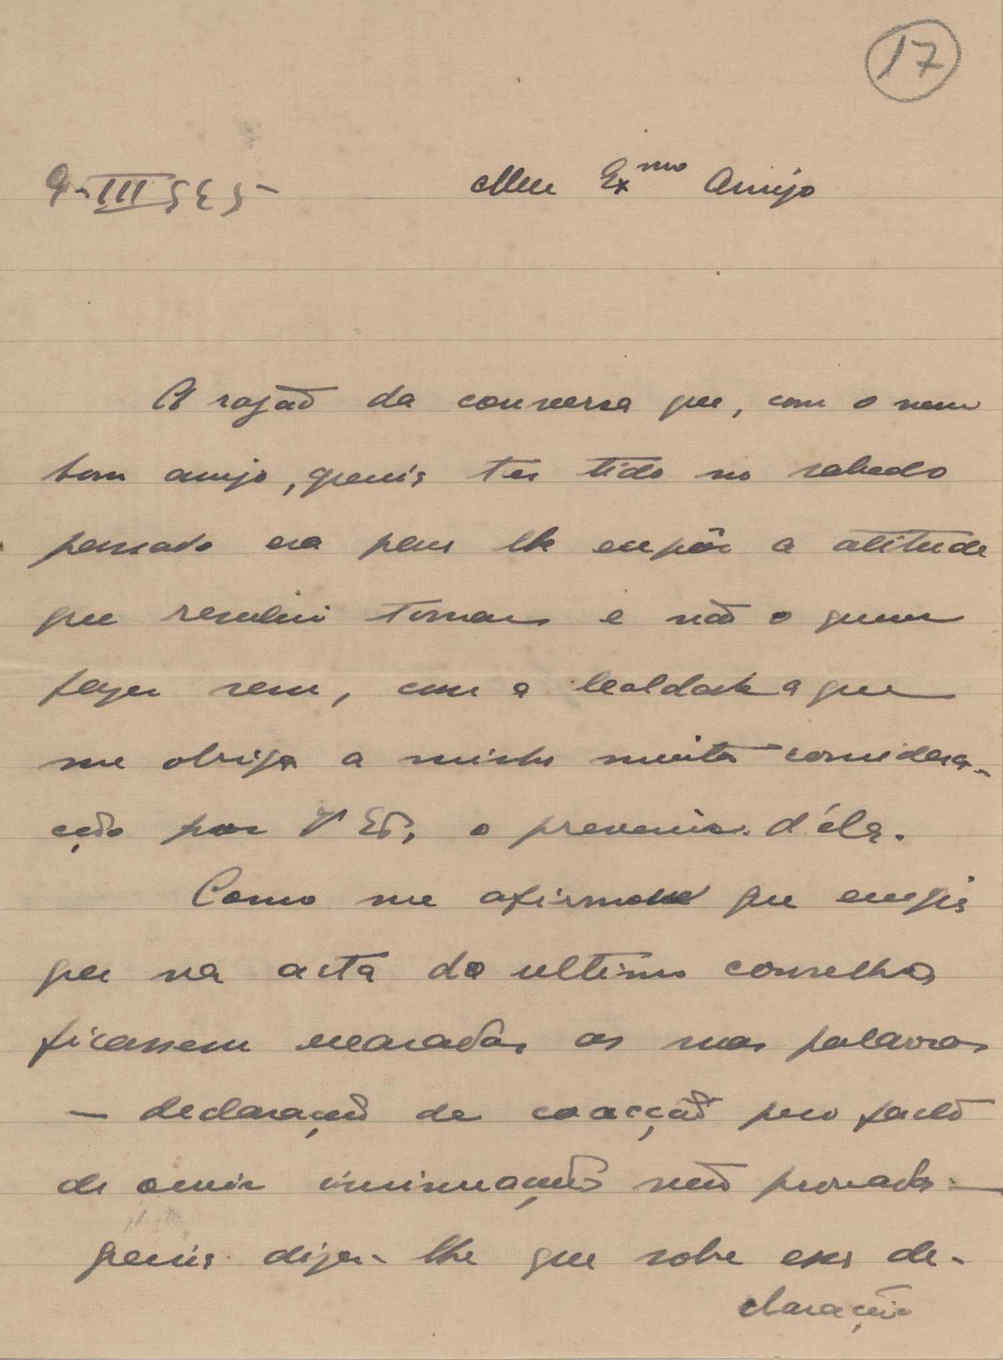 17
9-III
Meu Exmo Amigo
A razão da conversa que, com o meu
bom amigo, queria ter tido no sabado
passado era para lhe expôr a atitude
que resolvi tomar e não o queria
fazer sem, com a lealdade a que
me obriga a minha muita considera-
ção por V Exª, o prevenir d'éla.
Como me afirmou que exigia
que na acta do ultimo conselho
ficassem exaradas as suas palavras
— declaração de coacção pelo facto
de ouvir insinuações não provadas —
queria dizer-lhe que sobre essa de-
claração